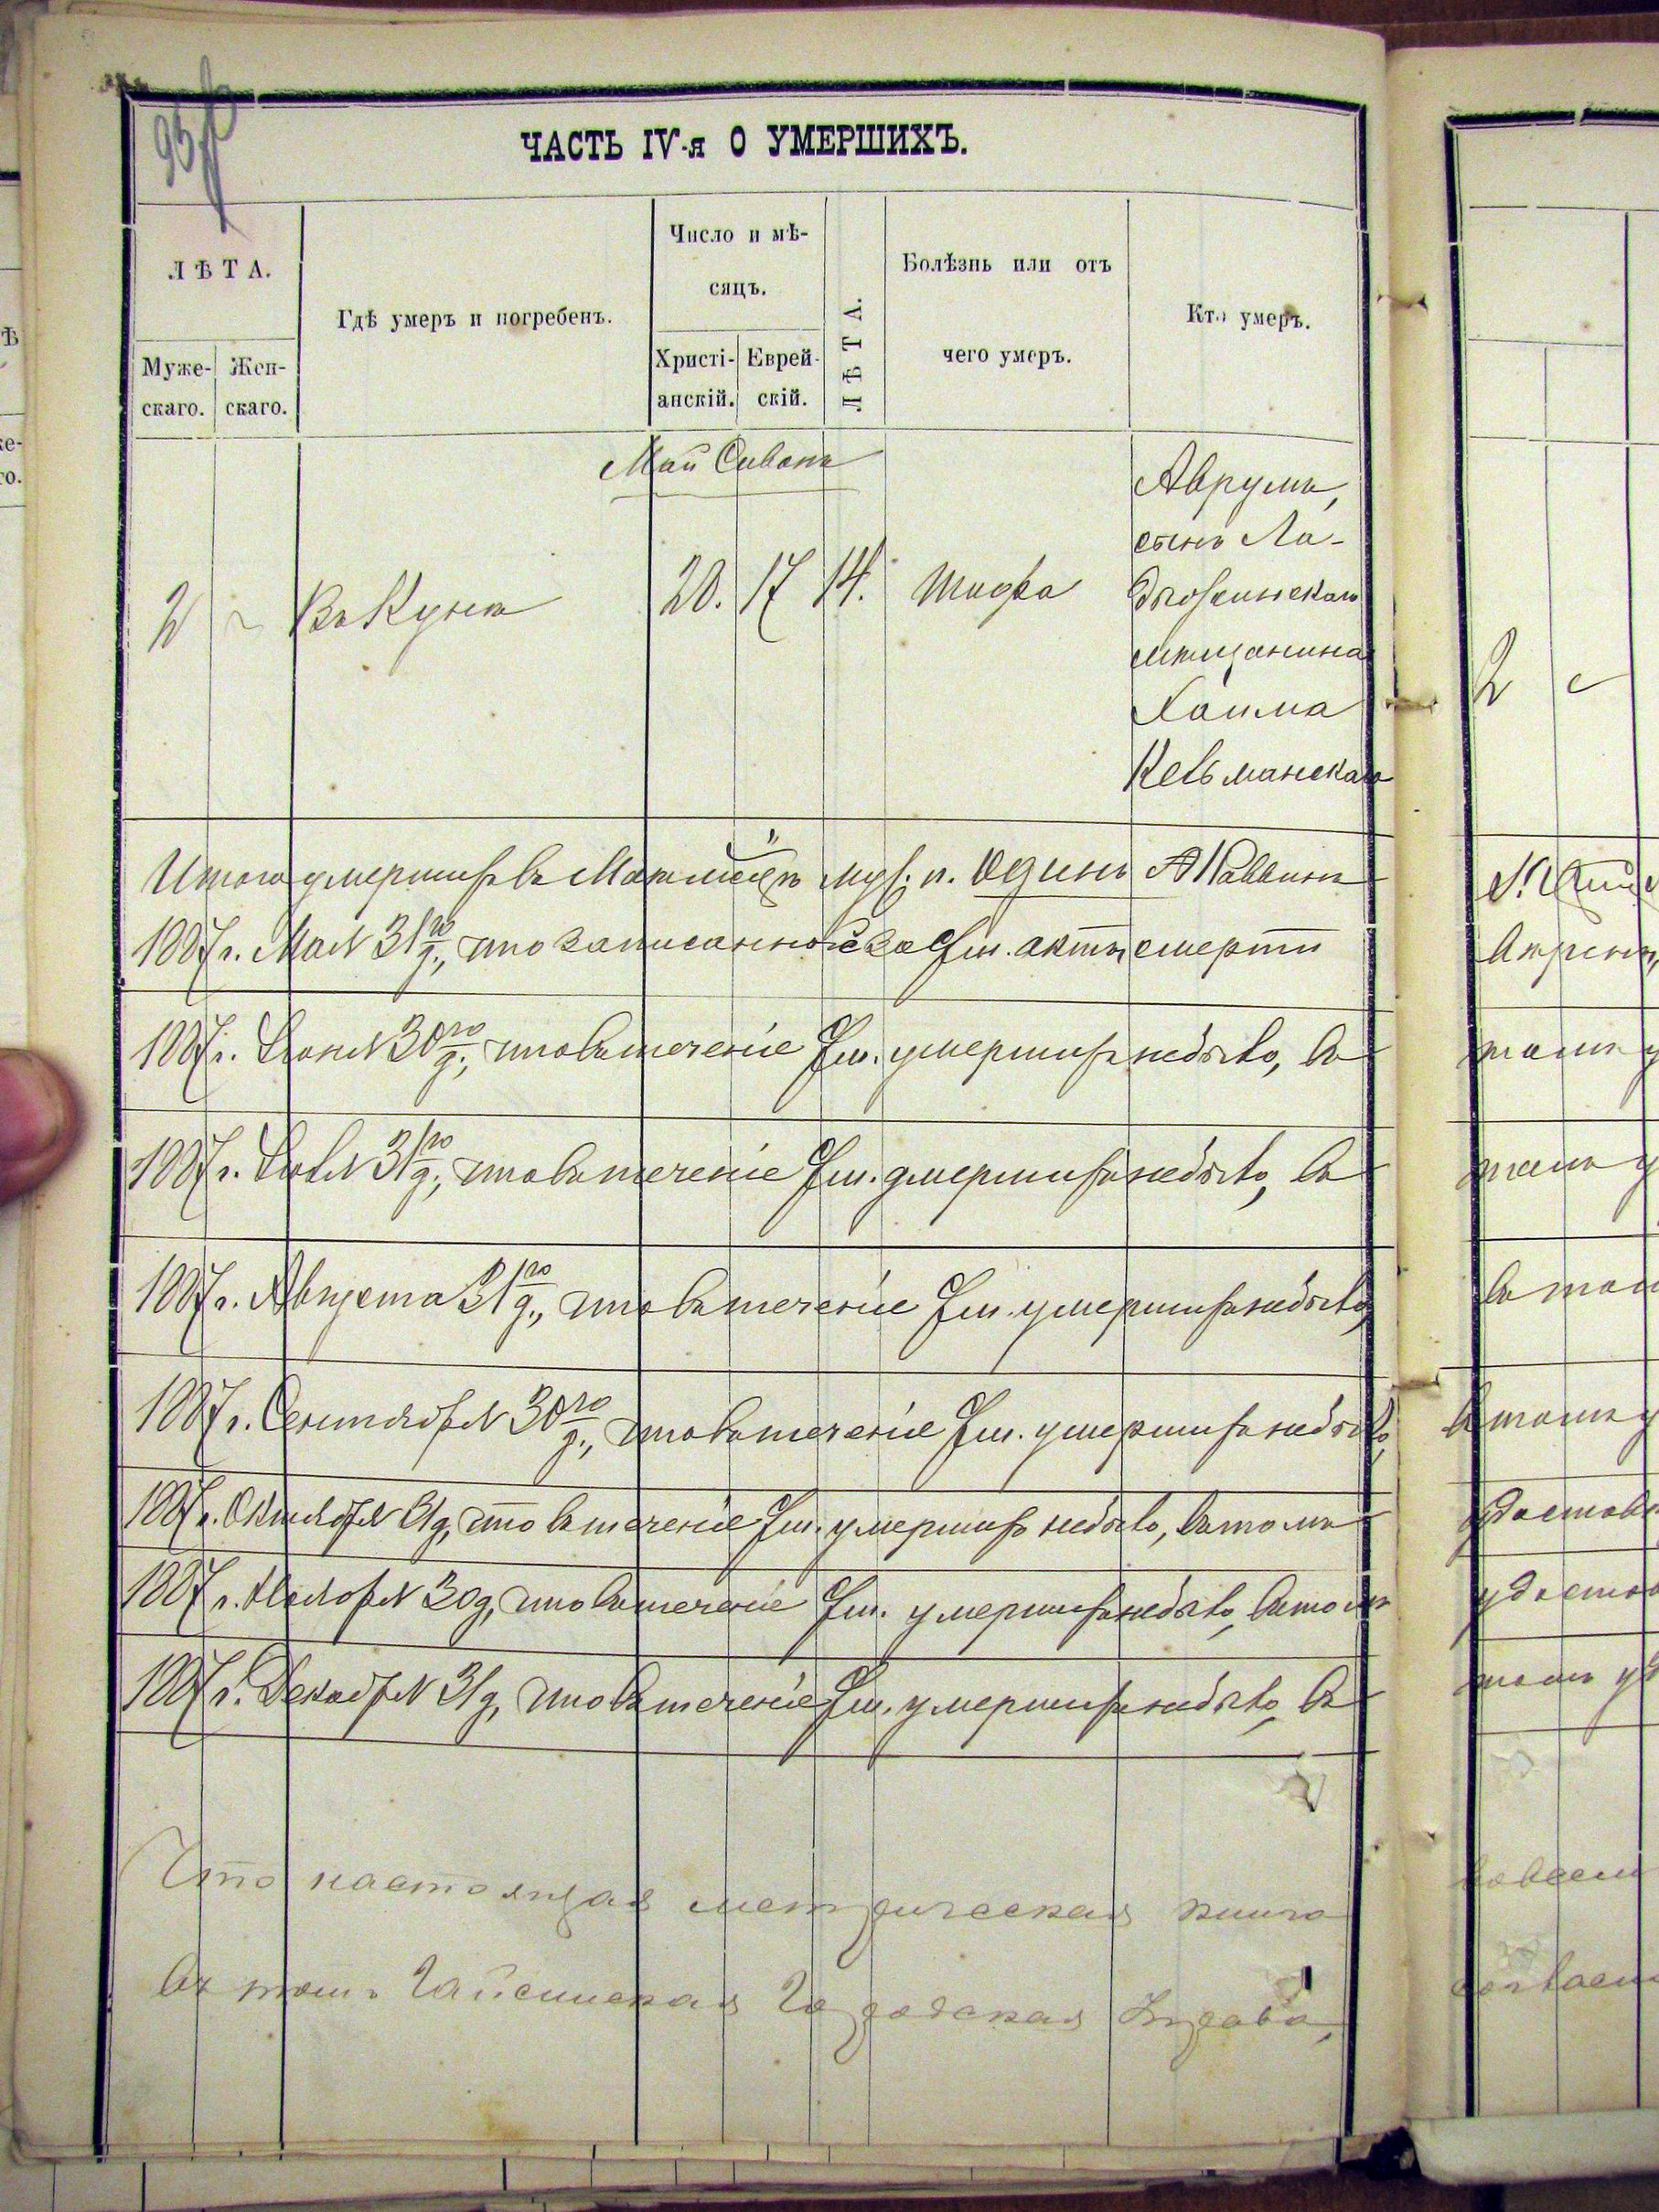 95
ЧАСТЬ IV-я О УМЕРШИХЪ.
ЛѢТА.
Муже-скаго.
Жен-скаго.
Гдѣ умеръ и погребенъ.
Число и мѣ-
сяцъ.
Христі-анскій.
Еврей-скій.
ЛѢТА.
Болѣзнь или отъ
чего умеръ.
Кто умеръ.
Май Сиванъ
Аврумъ,
сынъ Ла-
дыжинскаго
мѣщанина
Хаима
Кельманскаго
2 Въ Куна 20. 17 14. Тифа
Итого умершихъ въ Маѣ мѣсяцѣ муж. п. Одинъ Раввинъ
1887 г. Мая 31го д., что записанной за сей м. актъ смерти
1887 г. Іюня 30го д., что въ теченіе сего м. умершихъ небыло, въ
1887 г. Іюля 31го д., что въ теченіе сего м. умершихъ небыло, въ
1887 г. Августа 31го д., что въ теченіе сего м. умершихъ небыло,
1887 г. Сентября 30го д., что въ теченіе сего м. умершихъ небыло,
1887 г. Октября 31 д, что въ теченіе сего м. умершихъ небыло, въ томъ
1887 г. Ноября 30 д, что въ теченіе сего м. умершихъ небыло, въ томъ
1887 г. Декабря 31 д, что въ теченіе сего м. умершихъ небыло, въ
Что настоящая метрическая книга
въ томъ Гайсинская Городская Управа,
2